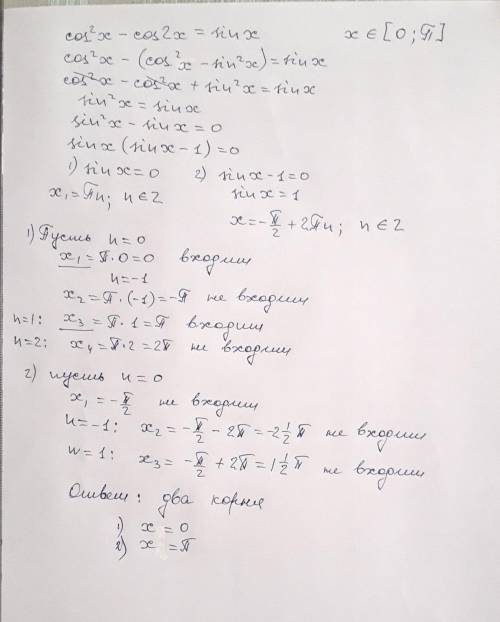 cos²x - cos2x = sinx x ∈ [0; П]
cos²x - (cos²x - sin²x) = sinx
cos²x - cos²x + sin²x = sinx
sin²x = sinx
sin²x - sinx = 0
sinx (sinx - 1) = 0
1) sinx = 0 2) sinx - 1 = 0
x₁ = Пn; n ∈ Z sinx = 1
x = -П/2 + 2Пn; n ∈ Z
1) Пусть n = 0
x₁ = П·0 = 0 входит
n = -1
x₂ = П·(-1) = -П не входит
n=1: x₃ = П·1 = П входит
n=2: x₄ = П·2 = 2П не входит
2) пусть n = 0
x₁ = -П/2 не входит
n = -1: x₂ = -П/2 - 2П = -2 1/2 П не входит
n = 1: x₃ = -П/2 + 2П = 1 1/2 П не входит
Ответ: два корня
1) x = 0
2) x = П